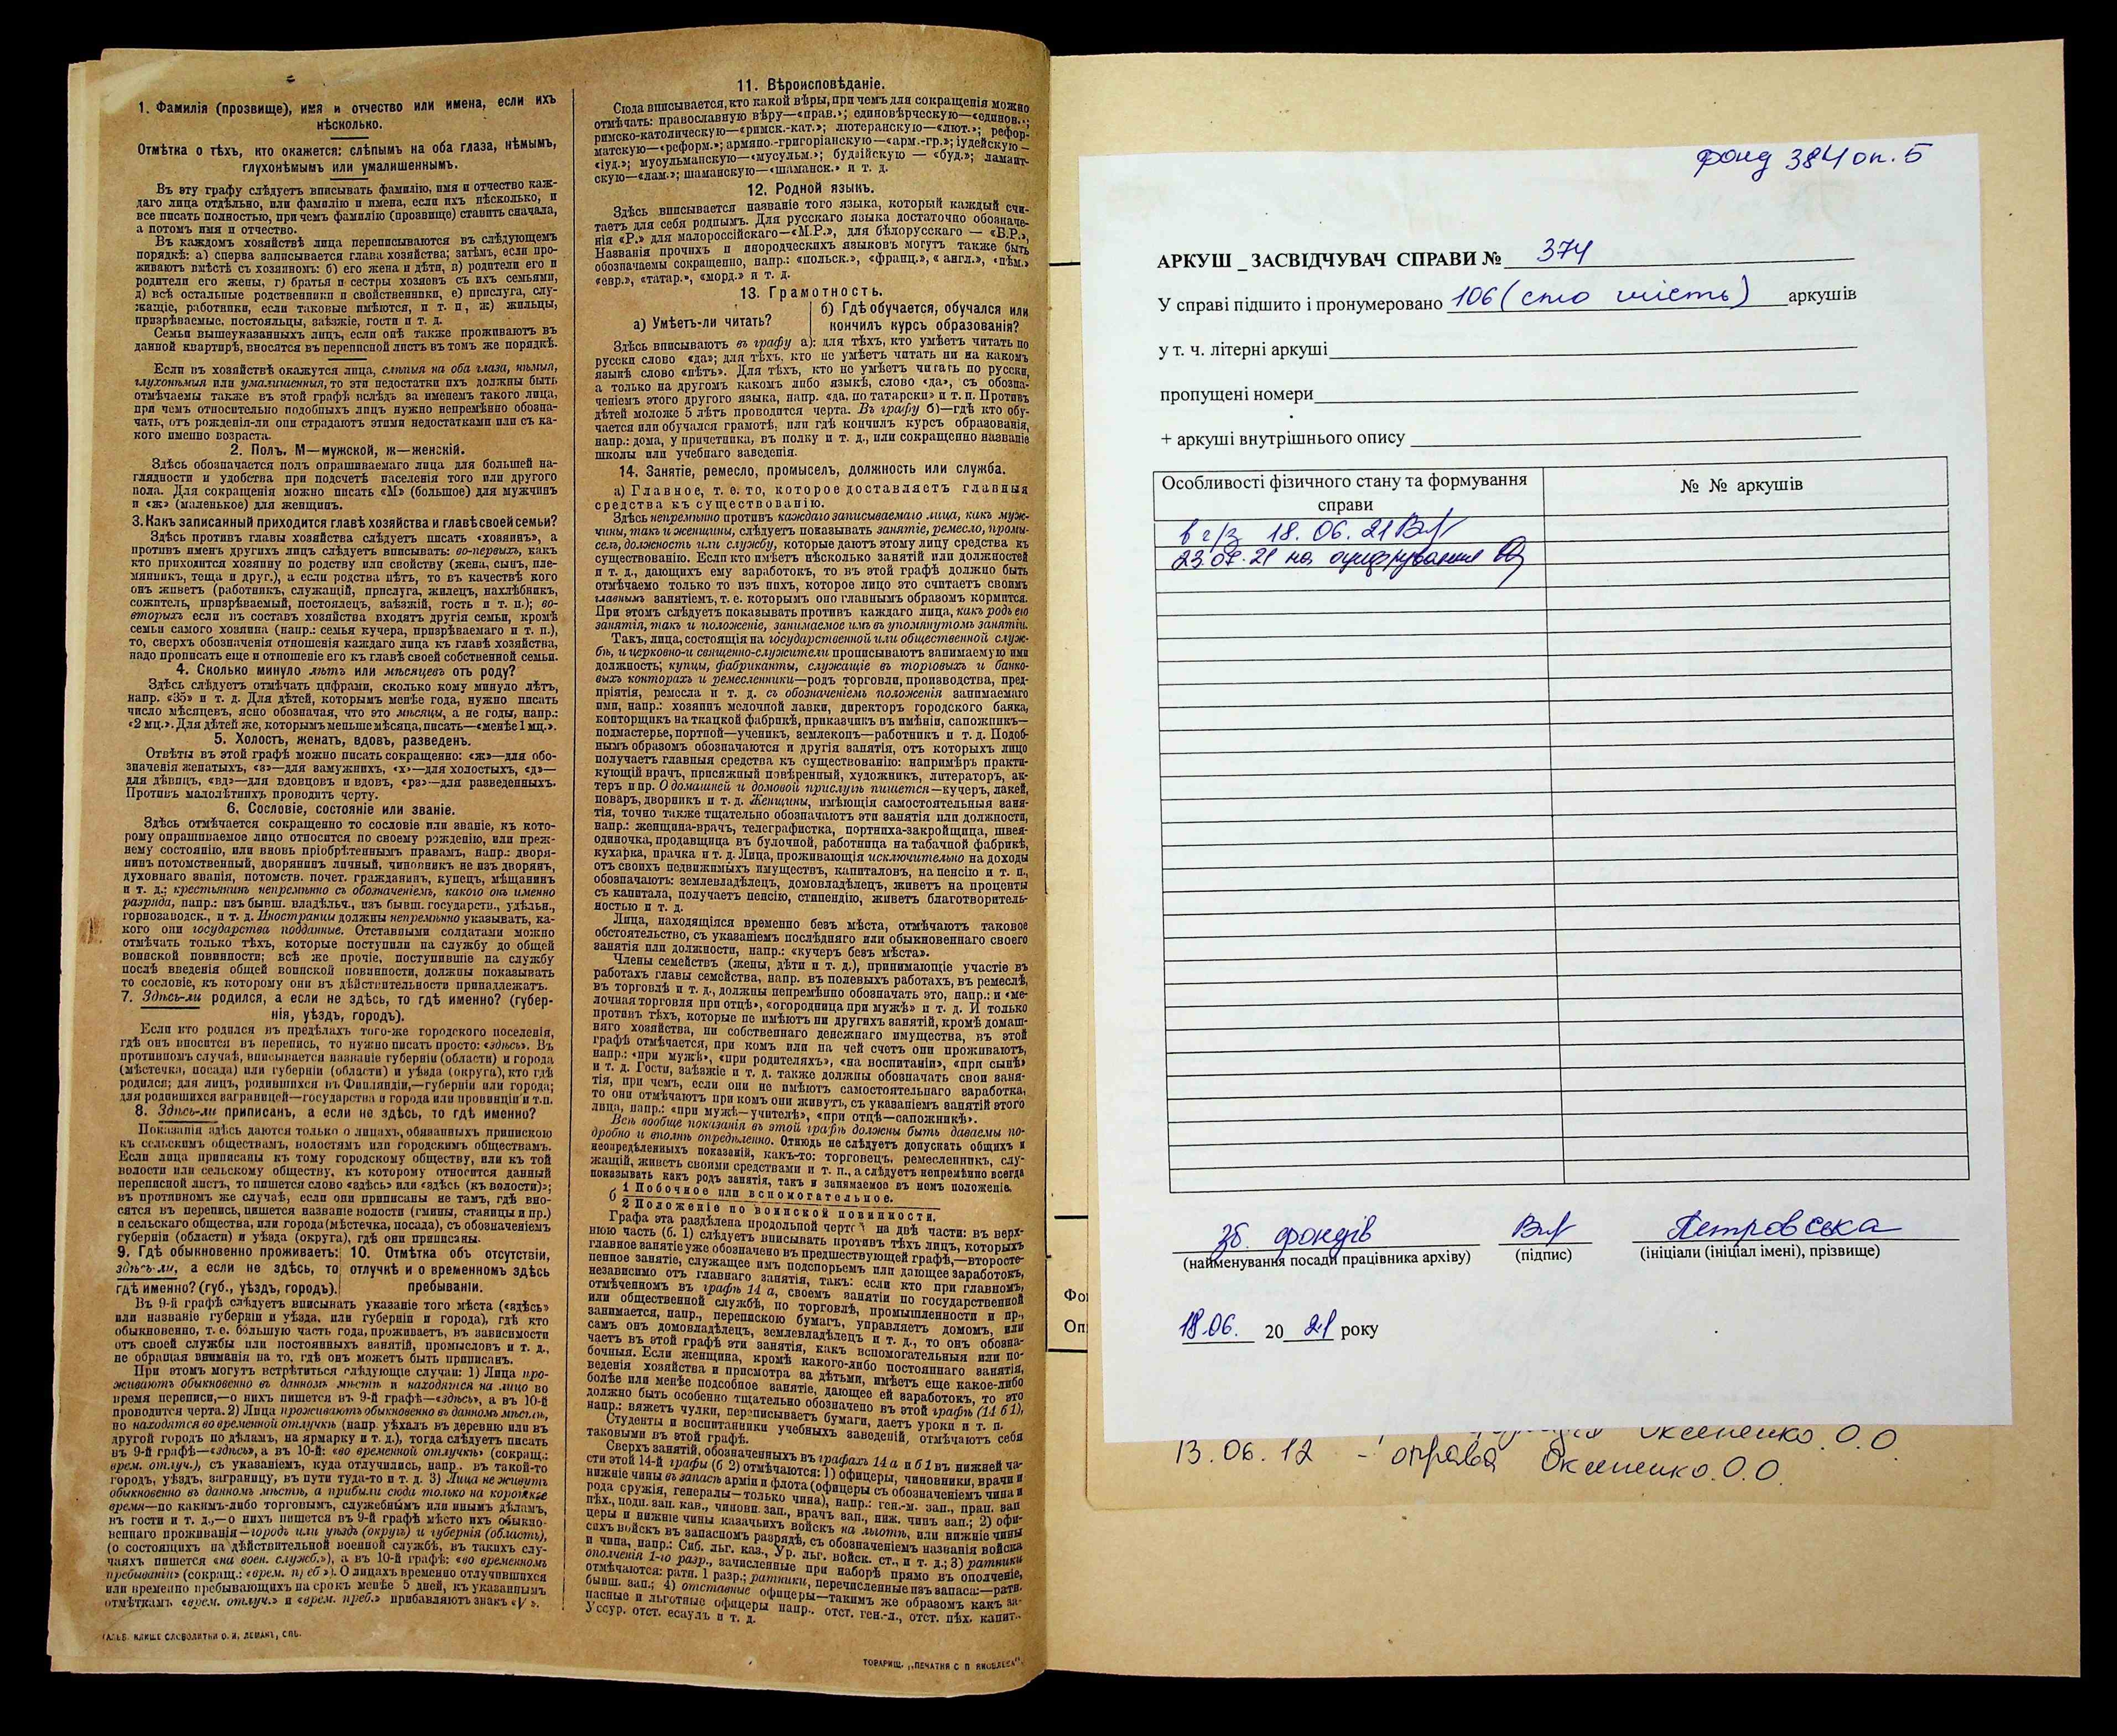 1. Фамилія (прозвище), имя и отчество или имена, если ихъ
нѣсколько.
Отмѣтка о тѣхъ, кто окажется: слѣпымъ на оба глаза, нѣмымъ,
глухонѣмымъ или умалишеннымъ.
Въ эту графу слѣдуетъ вписывать фамилію, имя и отчество каж-
даго лица отдѣльно, или фамилію и имена, если ихъ нѣсколько, и
все писать полностью, при чемъ фамилію (прозвище) ставить сначала,
а потомъ имя и отчество.
Въ каждомъ хозяйствѣ лица переписываются въ слѣдующемъ
порядкѣ: а) сперва записывается глава хозяйства; затѣмъ, если про-
живаютъ вмѣстѣ съ хозяиномъ: б) его жена и дѣти, в) родители его и
родители его жены, г) братья и сестры хозяевъ съ ихъ семьями,
д) всѣ остальные родственники и свойственники, е) прислуга, слу-
жащіе, работники, если таковые имѣются, и т. п., ж) жильцы,
призрѣваемые, постояльцы, заѣзжіе, гости и т. д.
Семьи вышеуказанныхъ лицъ, если онѣ также проживаютъ въ
данной квартирѣ, вносятся въ переписной листъ въ томъ же порядкѣ.
Если въ хозяйствѣ окажутся лица, слѣпыя на оба глаза, нѣмыя,
глухонѣмыя или умалишенныя, то эти недостатки ихъ должны быть
отмѣчаемы также въ этой графѣ вслѣдъ за именемъ такого лица,
при чемъ относительно подобныхъ лицъ нужно непремѣнно обозна-
чать, отъ рожденія-ли они страдаютъ этими недостатками или съ ка-
кого именно возраста.
2. Полъ. М—мужской, ж—женскій.
Здѣсь обозначается полъ опрашиваемаго лица для большей на-
глядности и удобства при подсчетѣ населенія того или другого
пола. Для сокращенія можно писать «М» (большое) для мужчинъ
и «ж» (маленькое) для женщинъ.
3. Какъ записанный приходится главѣ хозяйства и главѣ своей семьи?
Здѣсь противъ главы хозяйства слѣдуетъ писать «хозяинъ», а
противъ именъ другихъ лицъ слѣдуетъ вписывать: во-первыхъ, какъ
кто приходится хозяину по родству или свойству (жена, сынъ, пле-
мянникъ, теща и друг.), а если родства нѣтъ, то въ качествѣ кого
онъ живетъ (работникъ, служащій, прислуга, жилецъ, нахлѣбникъ,
сожитель, призрѣваемый, постоялецъ, заѣзжій, гость и т. п.); во-
вторыхъ если въ составъ хозяйства входятъ другія семьи, кромѣ
семьи самого хозяина (напр.: семья кучера, призрѣваемаго и т. п.),
то, сверхъ обозначенія отношенія каждаго лица къ главѣ хозяйства,
надо прописать еще и отношеніе его къ главѣ своей собственной семьи.
4. Сколько минуло лѣтъ или мѣсяцевъ отъ роду?
Здѣсь слѣдуетъ отмѣчать цифрами, сколько кому минуло лѣтъ,
напр. «35» и т. д. Для дѣтей, которымъ менѣе года, нужно писать
число мѣсяцевъ, ясно обозначая, что это мѣсяцы, а не годы, напр.:
«2 мц.». Для дѣтей же, которымъ меньше мѣсяца, писать—«менѣе 1 мц.».
5. Холостъ, женатъ, вдовъ, разведенъ.
Отвѣты въ этой графѣ можно писать сокращенно: «ж»—для обо-
значенія женатыхъ, «з»—для замужнихъ, «х»—для холостыхъ, «д»—
для дѣвицъ, «вд»—для вдовцовъ и вдовъ, «рз»—для разведенныхъ.
Противъ малолѣтнихъ проводить черту.
6. Сословіе, состояніе или званіе.
Здѣсь отмѣчается сокращенно то сословіе или званіе, къ кото-
рому опрашиваемое лицо относится по своему рожденію, или преж-
нему состоянію, или вновь пріобрѣтеннымъ правамъ, напр.: дворя-
нинъ потомственный, дворянинъ личный, чиновникъ не изъ дворянъ,
духовнаго званія, потомств. почет. гражданинъ, купецъ, мѣщанинъ
и т. д.; крестьянинъ непремѣнно съ обозначеніемъ, какого онъ именно
разряда, напр.: изъ бывш. владѣльч., изъ бывш. государств., удѣльн.,
горнозаводск., и т. д. Иностранцы должны непремѣнно указывать, ка-
кого они государства подданные. Отставными солдатами можно
отмѣчать только тѣхъ, которые поступили на службу до общей
воинской повинности; всѣ же прочіе, поступившіе на службу
послѣ введенія общей воинской повинности, должны показывать
то сословіе, къ которому они въ дѣйствительности принадлежатъ.
7. Здѣсь-ли родился, а если не здѣсь, то гдѣ именно? (губер-
нія, уѣздъ, городъ).
Если кто родился въ предѣлахъ того-же городского поселенія,
гдѣ онъ вносится въ перепись, то нужно писать просто: «здѣсь». Въ
противномъ случаѣ, вписывается названіе губерніи (области) и города
(мѣстечка, посада) или губерніи (области) и уѣзда (округа), кто гдѣ
родился; для лицъ, родившихся въ Финляндіи,—губерніи или города;
для родившихся заграницей—государства и города или провинціи и т.п.
8. Здѣсь-ли приписанъ, а если не здѣсь, то гдѣ именно?
Показанія здѣсь даются только о лицахъ, обязанныхъ припискою
къ сельскимъ обществамъ, волостямъ или городскимъ обществамъ.
Если лица приписаны къ тому городскому обществу, или къ той
волости или сельскому обществу, къ которому относится данный
переписной листъ, то пишется слово «здѣсь» или «здѣсь (къ волости)»;
въ противномъ же случаѣ, если они приписаны не тамъ, гдѣ вно-
сятся въ перепись, пишется названіе волости (гмины, станицы и пр.)
и сельскаго общества, или города (мѣстечка, посада), съ обозначеніемъ
губерніи (области) и уѣзда (округа), гдѣ они приписаны.
9. Гдѣ обыкновенно проживаетъ: здѣсь-ли, а если не здѣсь, то гдѣ именно? (губ., уѣздъ, городъ).
10. Отмѣтка объ отсутствіи, отлучкѣ и о временномъ здѣсь пребываніи.
Въ 9-й графѣ слѣдуетъ вписывать указаніе того мѣста («здѣсь»
или названіе губерніи и уѣзда, или губерніи и города), гдѣ кто
обыкновенно, т. е. бо́льшую часть года, проживаетъ, въ зависимости
отъ своей службы или постоянныхъ занятій, промысловъ и т. д.,
не обращая вниманія на то, гдѣ онъ можетъ быть приписанъ.
При этомъ могутъ встрѣтиться слѣдующіе случаи: 1) Лица про-
живаютъ обыкновенно въ данномъ мѣстѣ и находятся на лицо во
время переписи,—о нихъ пишется въ 9-й графѣ—«здѣсь», а въ 10-й
проводится черта. 2) Лица проживаютъ обыкновенно въ данномъ мѣстѣ,
но находятся во временной отлучкѣ (напр. уѣхалъ въ деревню или въ
другой городъ по дѣламъ, на ярмарку и т. д.), тогда слѣдуетъ писать
въ 9-й графѣ—«здѣсь», а въ 10-й: «во временной отлучкѣ» (сокращ.:
врем. отлуч.), съ указаніемъ, куда отлучились, напр.. въ такой-то
городъ, уѣздъ, заграницу, въ пути туда-то и т. д. 3) Лица не живутъ
обыкновенно въ данномъ мѣстѣ, а прибыли сюда только на короткое
время—по какимъ-либо торговымъ, служебнымъ или инымъ дѣламъ,
въ гости и т. д.,—о нихъ пишется въ 9-й графѣ мѣсто ихъ обыкно-
веннаго проживанія—городъ или уѣздъ (округъ) и губернія (область),
(о состоящихъ на дѣйствительной военной службѣ, въ такихъ слу-
чаяхъ пишется «на воен. служб.»), а въ 10-й графѣ: «во временномъ
пребываніи» (сокращ.: «врем. преб.»). О лицахъ временно отлучившихся
или временно пребывающихъ на срокъ менѣе 5 дней, къ указаннымъ
отмѣткамъ «врем. отлуч.» и «врем. преб.» прибавляютъ знакъ «V».
КЛИШЕ СЛОВОЛИТНИ О. И. ЛЕМАНЪ, СПБ.
11. Вѣроисповѣданіе.
Сюда вписывается, кто какой вѣры, при чемъ для сокращенія можно
отмѣчать: православную вѣру—«прав.»; единовѣрческую—«единов.»;
римско-католическую—«римск.-кат.»; лютеранскую—«лют.»; рефор-
матскую—«реформ.»; армяно.-григоріанскую—«арм.-гр.»; іудейскую—
«іуд.»; мусульманскую—«мусульм.»; буддійскую — «буд.»; ламаит-
скую—«лам.»; шаманскую—«шаманск.» и т. д.
12. Родной языкъ.
Здѣсь вписывается названіе того языка, который каждый счи-
таетъ для себя роднымъ. Для русскаго языка достаточно обозначе-
нія «Р.» для малороссійскаго—«М.Р.», для бѣлорусскаго — «Б.Р.»,
Названія прочихъ и инородческихъ языковъ могутъ также быть
обозначаемы сокращенно, напр.: «польск.», «франц.», «англ.», «нѣм.»
«евр.», «татар.», «морд.» и т. д.
13. Грамотность.
а) Умѣетъ-ли читать?
б) Гдѣ обучается, обучался или
кончилъ курсъ образованія?
Здѣсь вписываютъ въ графу а): для тѣхъ, кто умѣетъ читать по
русски слово «да»; для тѣхъ, кто не умѣетъ читать ни на какомъ
языкѣ слово «нѣтъ». Для тѣхъ, кто не умѣетъ читать по русски,
а только на другомъ какомъ либо языкѣ, слово «да», съ обозна-
ченіемъ этого другого языка, напр. «да, по татарски» и т. п. Противъ
дѣтей моложе 5 лѣтъ проводится черта. Въ графу б)—гдѣ кто обу-
чается или обучался грамотѣ, или гдѣ кончилъ курсъ образованія,
напр.: дома, у причетника, въ полку и т. д., или сокращенно названіе
школы или учебнаго заведенія.
14. Занятіе, ремесло, промыселъ, должность или служба.
а) Главное, т. е. то, которое доставляетъ главныя
средства къ существованію.
Здѣсь непремѣнно противъ каждаго записываемаго лица, какъ муж-
чины, такъ и женщины, слѣдуетъ показывать занятіе, ремесло, промы-
селъ, должность или службу, которые даютъ этому лицу средства къ
существованію. Если кто имѣетъ нѣсколько занятій или должностей
и т. д., дающихъ ему заработокъ, то въ этой графѣ должно быть
отмѣчаемо только то изъ нихъ, которое лицо это считаетъ своимъ
главнымъ занятіемъ, т. е. которымъ оно главнымъ образомъ кормится.
При этомъ слѣдуетъ показывать противъ каждаго лица, какъ родъ его
занятія, такъ и положеніе, занимаемое имъ въ упомянутомъ занятіи.
Такъ, лица, состоящія на государственной или общественной служ-
бѣ, и церковно-и священно-служители прописываютъ занимаемую ими
должность; купцы, фабриканты, служащіе въ торговыхъ и банко-
выхъ конторахъ и ремесленники—родъ торговли, производства, пред-
пріятія, ремесла и т. д. съ обозначеніемъ положенія занимаемаго
ими, напр.: хозяинъ мелочной лавки, директоръ городского банка,
конторщикъ на ткацкой фабрикѣ, приказчикъ въ имѣніи, сапожникъ—
подмастерье, портной—ученикъ, землекопъ—работникъ и т. д. Подоб-
нымъ образомъ обозначаются и другія занятія, отъ которыхъ лицо
получаетъ главныя средства къ существованію: напримѣръ практи-
кующій врачъ, присяжный повѣренный, художникъ, литераторъ, ак-
теръ и пр. О домашней и домовой прислугѣ пишется—кучеръ, лакей,
поваръ, дворникъ и т. д. Женщины, имѣющія самостоятельныя заня-
тія, точно также тщательно обозначаютъ эти занятія или должности,
напр.: женщина-врачъ, телеграфистка, портниха-закройщица, швея-
одиночка, продавщица въ булочной, работница на табачной фабрикѣ,
кухарка, прачка и т. д. Лица, проживающія исключительно на доходы
отъ своихъ недвижимыхъ имуществъ, капиталовъ, на пенсію и т. п.,
обозначаютъ: землевладѣлецъ, домовладѣлецъ, живетъ на проценты
съ капитала, получаетъ пенсію, стипендію, живетъ благотворитель-
ностью и т. д.
Лица, находящіяся временно безъ мѣста, отмѣчаютъ таковое
обстоятельство, съ указаніемъ послѣдняго или обыкновеннаго своего
занятія или должности, напр.: «кучеръ безъ мѣста».
Члены семействъ (жены, дѣти и т. д.), принимающіе участіе въ
работахъ главы семейства, напр. въ полевыхъ работахъ, въ ремеслѣ,
въ торговлѣ и т. д., должны непремѣнно обозначать это, напр.: и «ме-
лочная торговля при отцѣ», «огородница при мужѣ» и т. д. И только
противъ тѣхъ, которые не имѣютъ ни другихъ занятій, кромѣ домаш-
няго хозяйства, ни собственнаго денежнаго имущества, въ этой
графѣ отмѣчается, при комъ или на чей счетъ они проживаютъ,
напр.: «при мужѣ», «при родителяхъ», «на воспитаніи», «при сынѣ»
и т. д. Гости, заѣзжіе и т. д. также должны обозначать свои заня-
тія, при чемъ, если они не имѣютъ самостоятельнаго заработка,
то они отмѣчаютъ при комъ они живутъ, съ указаніемъ занятій этого
лица, напр.: «при мужѣ—учителѣ», «при отцѣ—сапожникѣ».
Всѣ вообще показанія въ этой графѣ должны быть даваемы по-
дробно и вполнѣ опредѣленно. Отнюдь не слѣдуетъ допускать общихъ и
неопредѣленныхъ показаній, какъ-то: торговецъ, ремесленникъ, слу-
жащій, живетъ своими средствами и т. п., а слѣдуетъ непремѣнно всегда
показывать какъ родъ занятія, такъ и занимаемое въ немъ положеніе.
б 1 Побочное или вспомогательное.
2 Положеніе по воинской повинности.
Графа эта раздѣлена продольной чертой на двѣ части: въ верх-
нюю часть (б. 1) слѣдуетъ вписывать противъ тѣхъ лицъ, которыхъ
главное занятіе уже обозначено въ предшествующей графѣ,—второсте-
пенное занятіе, служащее имъ подспорьемъ или дающее заработокъ,
независимо отъ главнаго занятія, такъ: если кто при главномъ,
отмѣченномъ въ графѣ 14 а, своемъ занятіи по государственной
или общественной службѣ, по торговлѣ, промышленности и пр.,
занимается, напр., перепискою бумагъ, управляетъ домомъ, или
самъ онъ домовладѣлецъ, землевладѣлецъ и т. д., то онъ обозна-
чаетъ въ этой графѣ эти занятія, какъ вспомогательныя или по-
бочныя. Если женщина, кромѣ какого-либо постояннаго занятія,
веденія хозяйства и присмотра за дѣтьми, имѣетъ еще какое-либо
болѣе или менѣе подсобное занятіе, дающее ей заработокъ, то это
должно быть особенно тщательно обозначено въ этой графѣ (14 б 1),
напр.: вяжетъ чулки, переписываетъ бумаги, даетъ уроки и т. п.
Студенты и воспитанники учебныхъ заведеній, отмѣчаютъ себя
таковыми въ этой графѣ.
Сверхъ занятій, обозначенныхъ въ графахъ 14 а и б 1 въ нижней ча-
сти этой 14-й графы (б 2) отмѣчаются: 1) офицеры, чиновники, врачи и
нижніе чины въ запасѣ арміи и флота (офицеры съ обозначеніемъ чина и
рода оружія, генералы—только чина), напр.: ген.-м. зап., прап. зап
пѣх., подп. зап. кав., чиновн. зап., врачъ зап., ниж. чинъ зап.; 2) офи-
церы и нижніе чины казачьихъ войскъ на льготѣ, или нижніе чины
сихъ войскъ въ запасномъ разрядѣ, съ обозначеніемъ названія войска
и чина, напр.: Сиб. льг. каз., Ур. льг. войск. ст., и т. д.; 3) ратники
ополченія 1-го разр., зачисленные при наборѣ прямо въ ополченіе,
отмѣчаются: ратн. 1 разр.; ратники, перечисленные изъ запаса:—ратн.
бывш. зап.; 4) отставные офицеры—такимъ же образомъ какъ за-
пасные и льготные офицеры напр.. отст. ген.-л., отст. пѣх. капит..
Уссур. отст. есаулъ и т. д.
ТОВАРИЩ. „ПЕЧАТНЯ С П ЯКОВЛЕВА"
фонд 384 оп. 5
АРКУШ _ ЗАСВІДЧУВАЧ СПРАВИ № 374
У справі підшито і пронумеровано 106 (сто шість) аркушів
у т. ч. літерні аркуші
пропущені номери
+ аркуші внутрішнього опису
Особливості фізичного стану та формування
справи
№ № аркушів
в г/з 18. 06. 21
23.07.21 на оцифрування
зб. фондів Петровська
(найменування посади працівника архіву) (підпис) (ініціали (ініціал імені), прізвище)
18.06. 20 21 року
Фо
Оп
Оксененко. О.О
13.06.12 - оправа Оксененко.О.О.